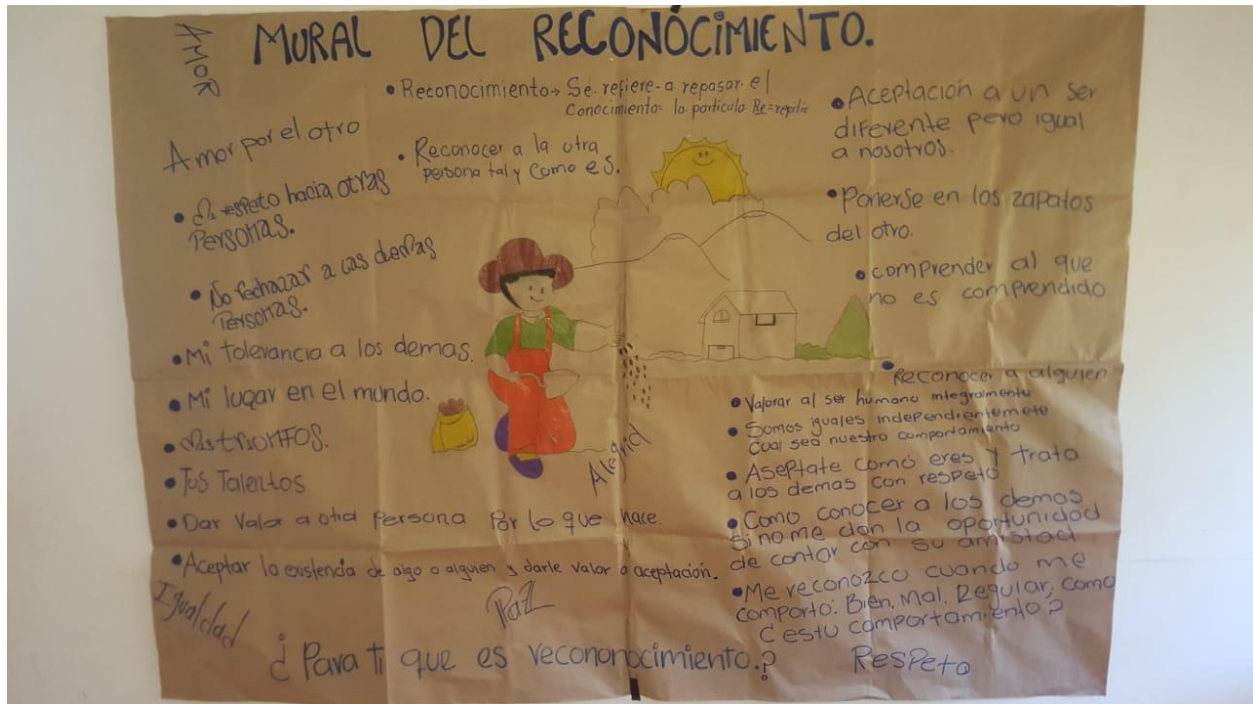 AMOR
MURAL DEL RECONOCIMIENTO.
• Reconocimiento→ Se refiere a repasar el
Conocimiento: la particula Re=repetir
Amor por el otro
• Reconocer a la otra
persona tal y como es.
• Mi respeto hacia otras
Personas.
• No rechazar a las demas
Personas.
• Mi tolerancia a los demas.
• Mi lugar en el mundo.
• Mis triunfos.
• Tus Talentos
• Dar Valor a otra Persona Por lo que hace.
• Aceptar la existencia de algo o alguien y darle valor o aceptación.
• Aceptación a un ser
diferente pero igual
a nosotros.
• Ponerse en los zapatos
del otro.
• comprender al que
no es comprendido
• Reconocer a alguien
• Valorar al ser humano integralmente
• Somos iguales independientemete
Cual sea nuestro comportamiento
• Aseptate como eres y trata
a los demas con respeto
• Como conocer a los demas
Si no me dan la oportunidad
de contar con su amistad
• Me reconozco cuando me
comporto: Bien, Mal, Regular, como
¿estu comportamiento?
Alegria
Igualdad
Paz
¿Para ti que es recononocimiento.?
Respeto